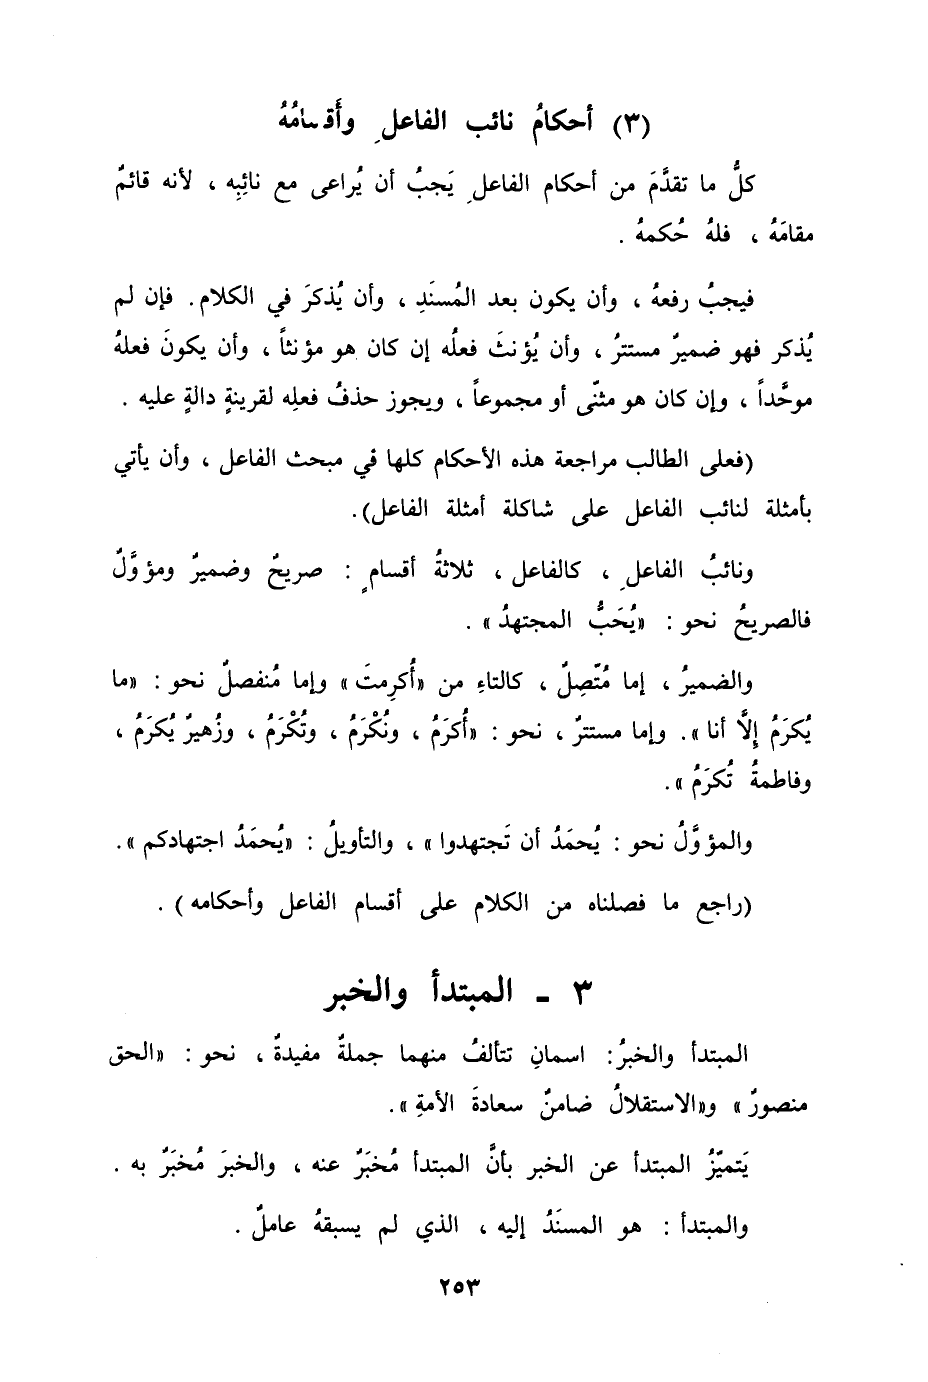 (٣) أحكامُ نائب الفاعلِ وأَقسامُهُ
كلُّ ما تقدَّمَ من أحكام الفاعلِ يَجبُ أن يُراعى مع نائِبِه ، لأنه قائمٌ
مقامَهُ ، فلهُ حُكمهُ .
فيجبُ رفعهُ ، وأن يكون بعد المُسنَدِ ، وأن يُذكرَ في الكلام. فإن لم
يُذكر فهو ضميرٌ مستترُ ، وأن يُؤنثَ فعلُه إن كان هو مؤنثاً ، وأن يكونَ فعلهُ
موحَّداً ، وإن كان هو مثنّى أو مجموعاً ، ويجوز حذفُ فعلِه لقرينةٍ دالةٍ عليه .
(فعلى الطالب مراجعة هذه الأحكام كلها في مبحث الفاعل ، وأن يأتي
بأمثلة لنائب الفاعل على شاكلة أمثلة الفاعل).
ونائبُ الفاعلِ ، كالفاعل ، ثلاثةُ أقسامٍ : صريحٌ وضميرٌ ومؤوَّلٌ
فالصريحُ نحو : «يُحَبُّ المجتهدُ» .
والضميرُ ، إما مُتّصِلٌ ، كالتاءِ من «أُكرِمتَ» وإما مُنفصلٌ نحو : «ما
يُكرَمُ إِلَّا أنا». وإما مستترٌ ، نحو : «أُكرَمُ ، ونُكْرَمُ ، وتُكْرَمُ ، وزُهيرٌ يُكرَمُ ،
وفاطمةُ تُكرَمُ».
والمؤوَّلُ نحو : يُحمَدُ أن تَجتهدوا» ، والتأويلُ : «يُحمَدُ اجتهادكم».
(راجع ما فصلناه من الكلام على أقسام الفاعل وأحكامه) .
٣ - المبتدأ والخبر
المبتدأ والخبرُ: اسمانِ تتألفُ منهما جملةٌ مفيدةٌ ، نحو : «الحق
منصورٌ» و«الاستقلالُ ضامنٌ سعادةَ الأمةِ».
يَتميّزُ المبتدأ عن الخبر بأنَّ المبتدأ مُخبَرٌ عنه ، والخبرَ مُخبَرٌ به .
والمبتدأ : هو المسنَدُ إليه ، الذي لم يسبقهُ عاملٌ .
٢٥٣